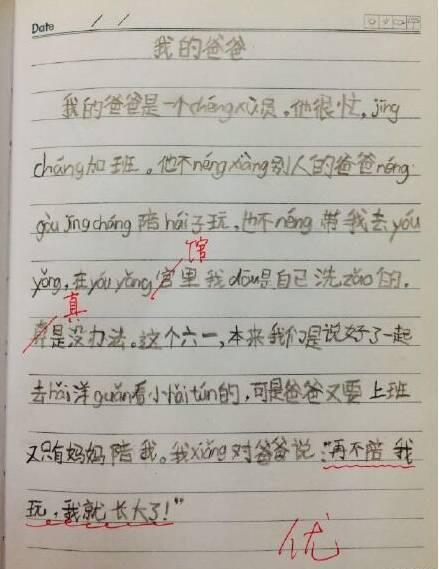 Date / /
我的爸爸
我的爸爸是一个chéngxù员,他很忙,jīng
cháng加班。他不néngxiàng别人的爸爸néng
gòu jīngcháng 陪hái子玩,也不néng 带我去yóu
yǒng,在yóuyǒng宫里我dōu是自己洗zǎo的。
馆
真是没办法。这个六一,本来我们是说好了一起
真
去hǎi洋guǎn看小hǎitún的,可是爸爸又要上班
又只有妈妈陪我。我xiǎng对爸爸说:"再不陪我
玩,我就长大了!"
优